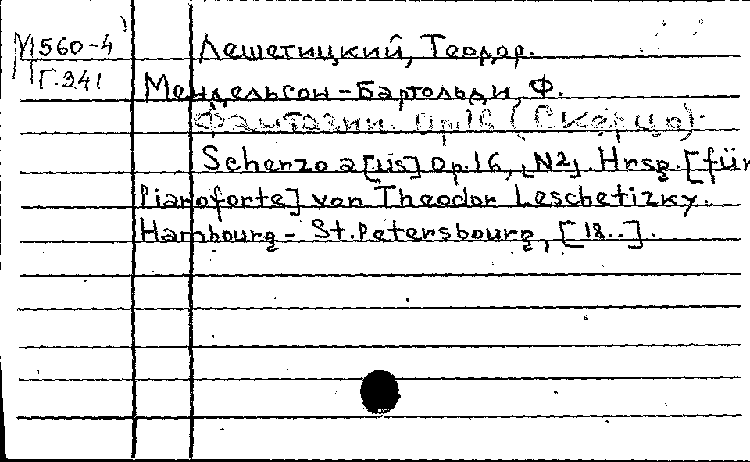 М560-4
Г.341
Лешетицкий, Теодор.
Мендельсон-Бартольди, Ф.
Фантазии. Op.16 (Скерцо).
Scherzo a[us] Op.16, [N2]. Hrsg. [für
Pianoforte] von Theodor Leschetizky.
Hambourg - St.Petersbourg, [18..].